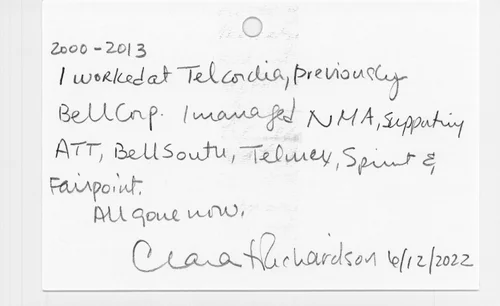 2000-2013
I worked at Telcordia, previously
BellCorp. I managed NMA, supporting
ATT, BellSouth, Telmex, Sprint &
Fairpoint.
All gone now.
Clara H Richardson 6/12/2022